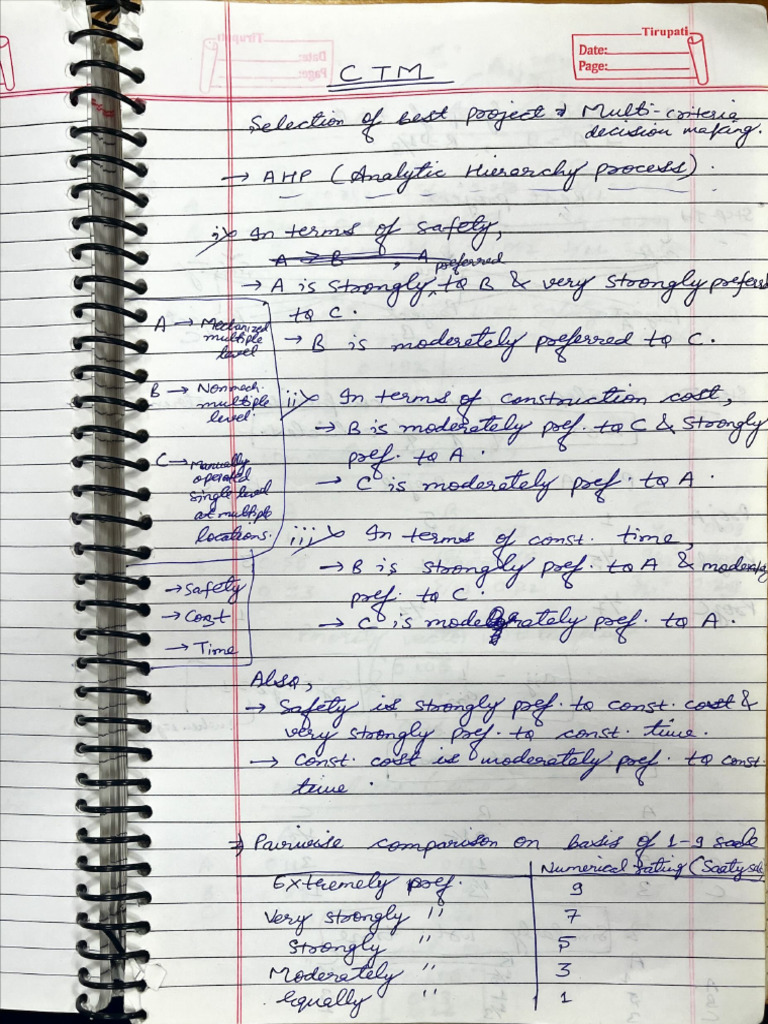 Tirupati
Date:
Page:
CTM
Selection of best project → Multi-criteria
decision making.
→ AHP (Analytic Hierarchy process).
i) In terms of safety,
A → B , A
preferred
→ A is strongly to B & very strongly preferr
to C.
→ B is moderately preferred to C.
A → Mechanized
multiple
level
B → Nonmech.
multiple
level.
C → Manually
operated
single level
at multiple
locations.
ii) In terms of construction cost,
→ B is moderately pref. to C & strongly
pref. to A.
→ C is moderately pref. to A.
iii) In terms of const. time,
→ B is strongly pref. to A & moderately
pref. to C.
→ C is moderately pref. to A.
→ Safety
→ Cost
→ Time
Also,
→ Safety is strongly pref. to const. cost &
very strongly pref. to const. time.
→ Const. cost is moderately pref. to const.
time.
⇒ Pairwise comparison on basis of 1-9 scale
Numerical rating (Saaty
Extremely pref. 9
Very strongly " 7
Strongly " 5
Moderately " 3
Equally " 1